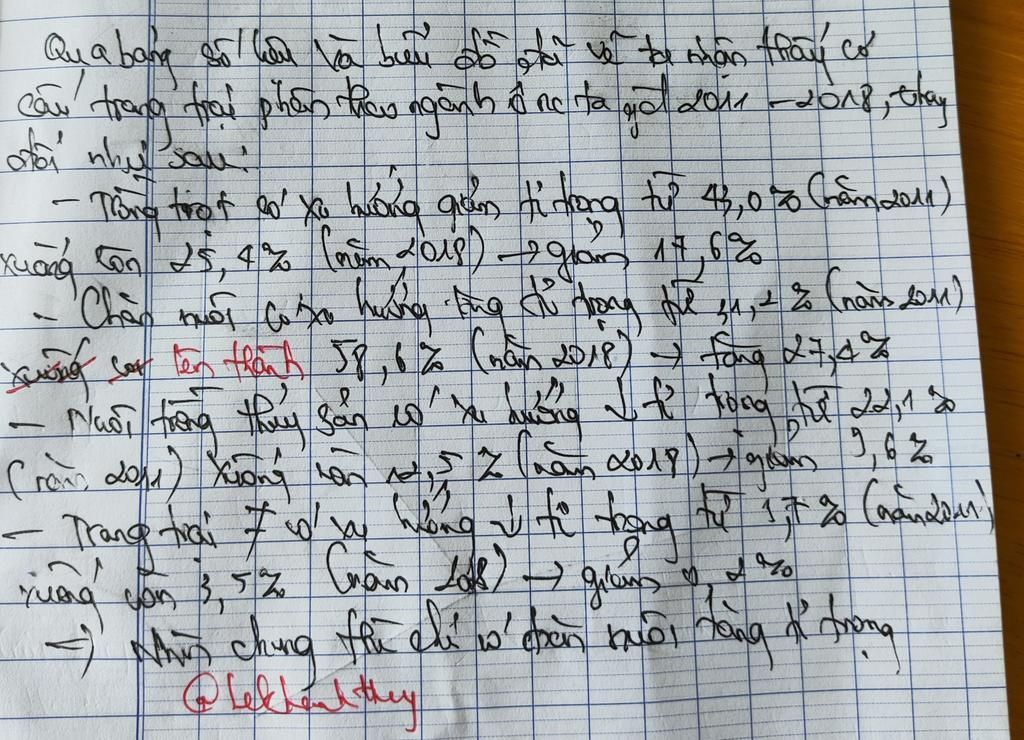 Qua bảng số liệu và biểu đồ đã vẽ ta nhận thấy cơ
cấu trang trại phân theo ngành ở nc ta gđ 2011 - 2018, thay
đổi như sau:
- Trồng trọt có xu hướng giảm tỉ trọng từ 43,0% (năm 2011)
xuống còn 25,4% (năm 2018) → giảm 17,6%
- Chăn nuôi có xu hướng tăng tỉ trọng từ 31,2% (năm 2011)
xuống còn lên thành 58,6% (năm 2018) → tăng 27,4%
- Nuôi trồng thủy sản có xu hướng ↓ tỉ trọng từ 22,1%
(năm 2011) xuống còn 12,5% (năm 2018) → giảm 9,6%
- Trang trại ≠ có xu hướng ↓ tỉ trọng từ 3,7% (năm 2011)
xuống còn 3,5% (năm 2018) → giảm 0,2%
=> Nhìn chung thì chỉ có chăn nuôi tăng tỉ trọng
@lekhanhthuy